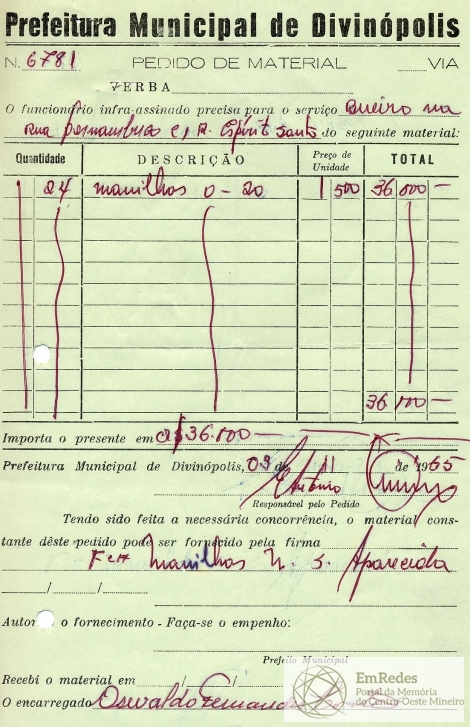 Prefeitura Municipal de Divinópolis
N. 6781 PEDIDO DE MATERIAL VIA
VERBA
O funcionário infra-assinado precisa para o serviço Bueiro na
Rua Pernambuco e, R. Espírito Santo do seguinte material:
Quantidade DESCRIÇÃO Preço de Unidade TOTAL
24 manilhas 0-20 1 500 36 000 —
36 000 —
Importa o presente em CR$ 36.000 —
Prefeitura Municipal de Divinópolis, 03 de 11 de 1965
Antônio
Responsável pelo Pedido
Tendo sido feita a necessária concorrência, o material cons-
tante dêste pedido pode ser fornecido pela firma
Fca Manilhas N. S. Aparecida
/ /
Autor o fornecimento - Faça-se o empenho:
Prefeito Municipal
Recebi o material em / /
O encarregado Oswaldo
EmRedes
Portal da Memória
do Centro-Oeste Mineiro